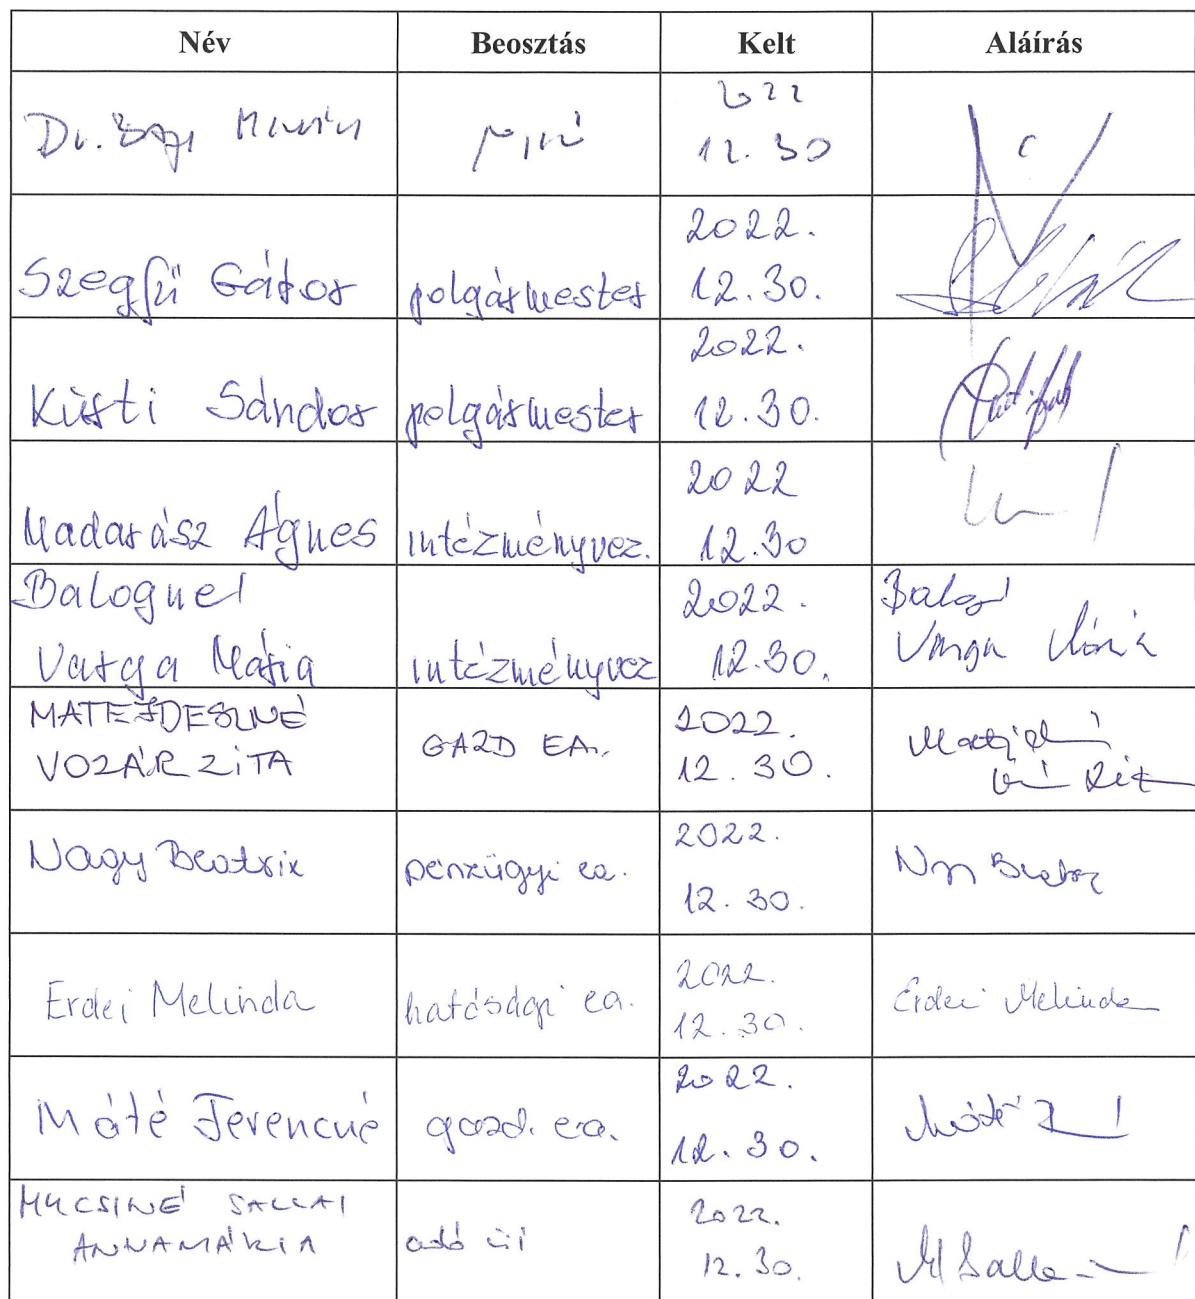 Név Beosztás Kelt Aláírás
Dr.
2022
12.30
Szegfű Gábor polgármester
2022.
12.30.
Kürti Sándor polgármester
2022.
12.30.
Madarász Ágnes intézményvez.
2022
12.30
Baloguel
Varga Mária intézményvez
2022.
12.30.
Varga Mária
MATEJDESZNÉ
VOZÁR ZITA
GAZD EA.
2022.
12.30.
Nagy Beatrix pénzügyi ea.
2022.
12.30.
Erdei Melinda hatósági ea.
2022.
12.30.
Erdei Melinda
Máté Ferencné gazd. ea.
2022.
12.30.
Máté
MUCSINÉ SALLAI
ANNAMÁRIA
adó üi
2022.
12.30.